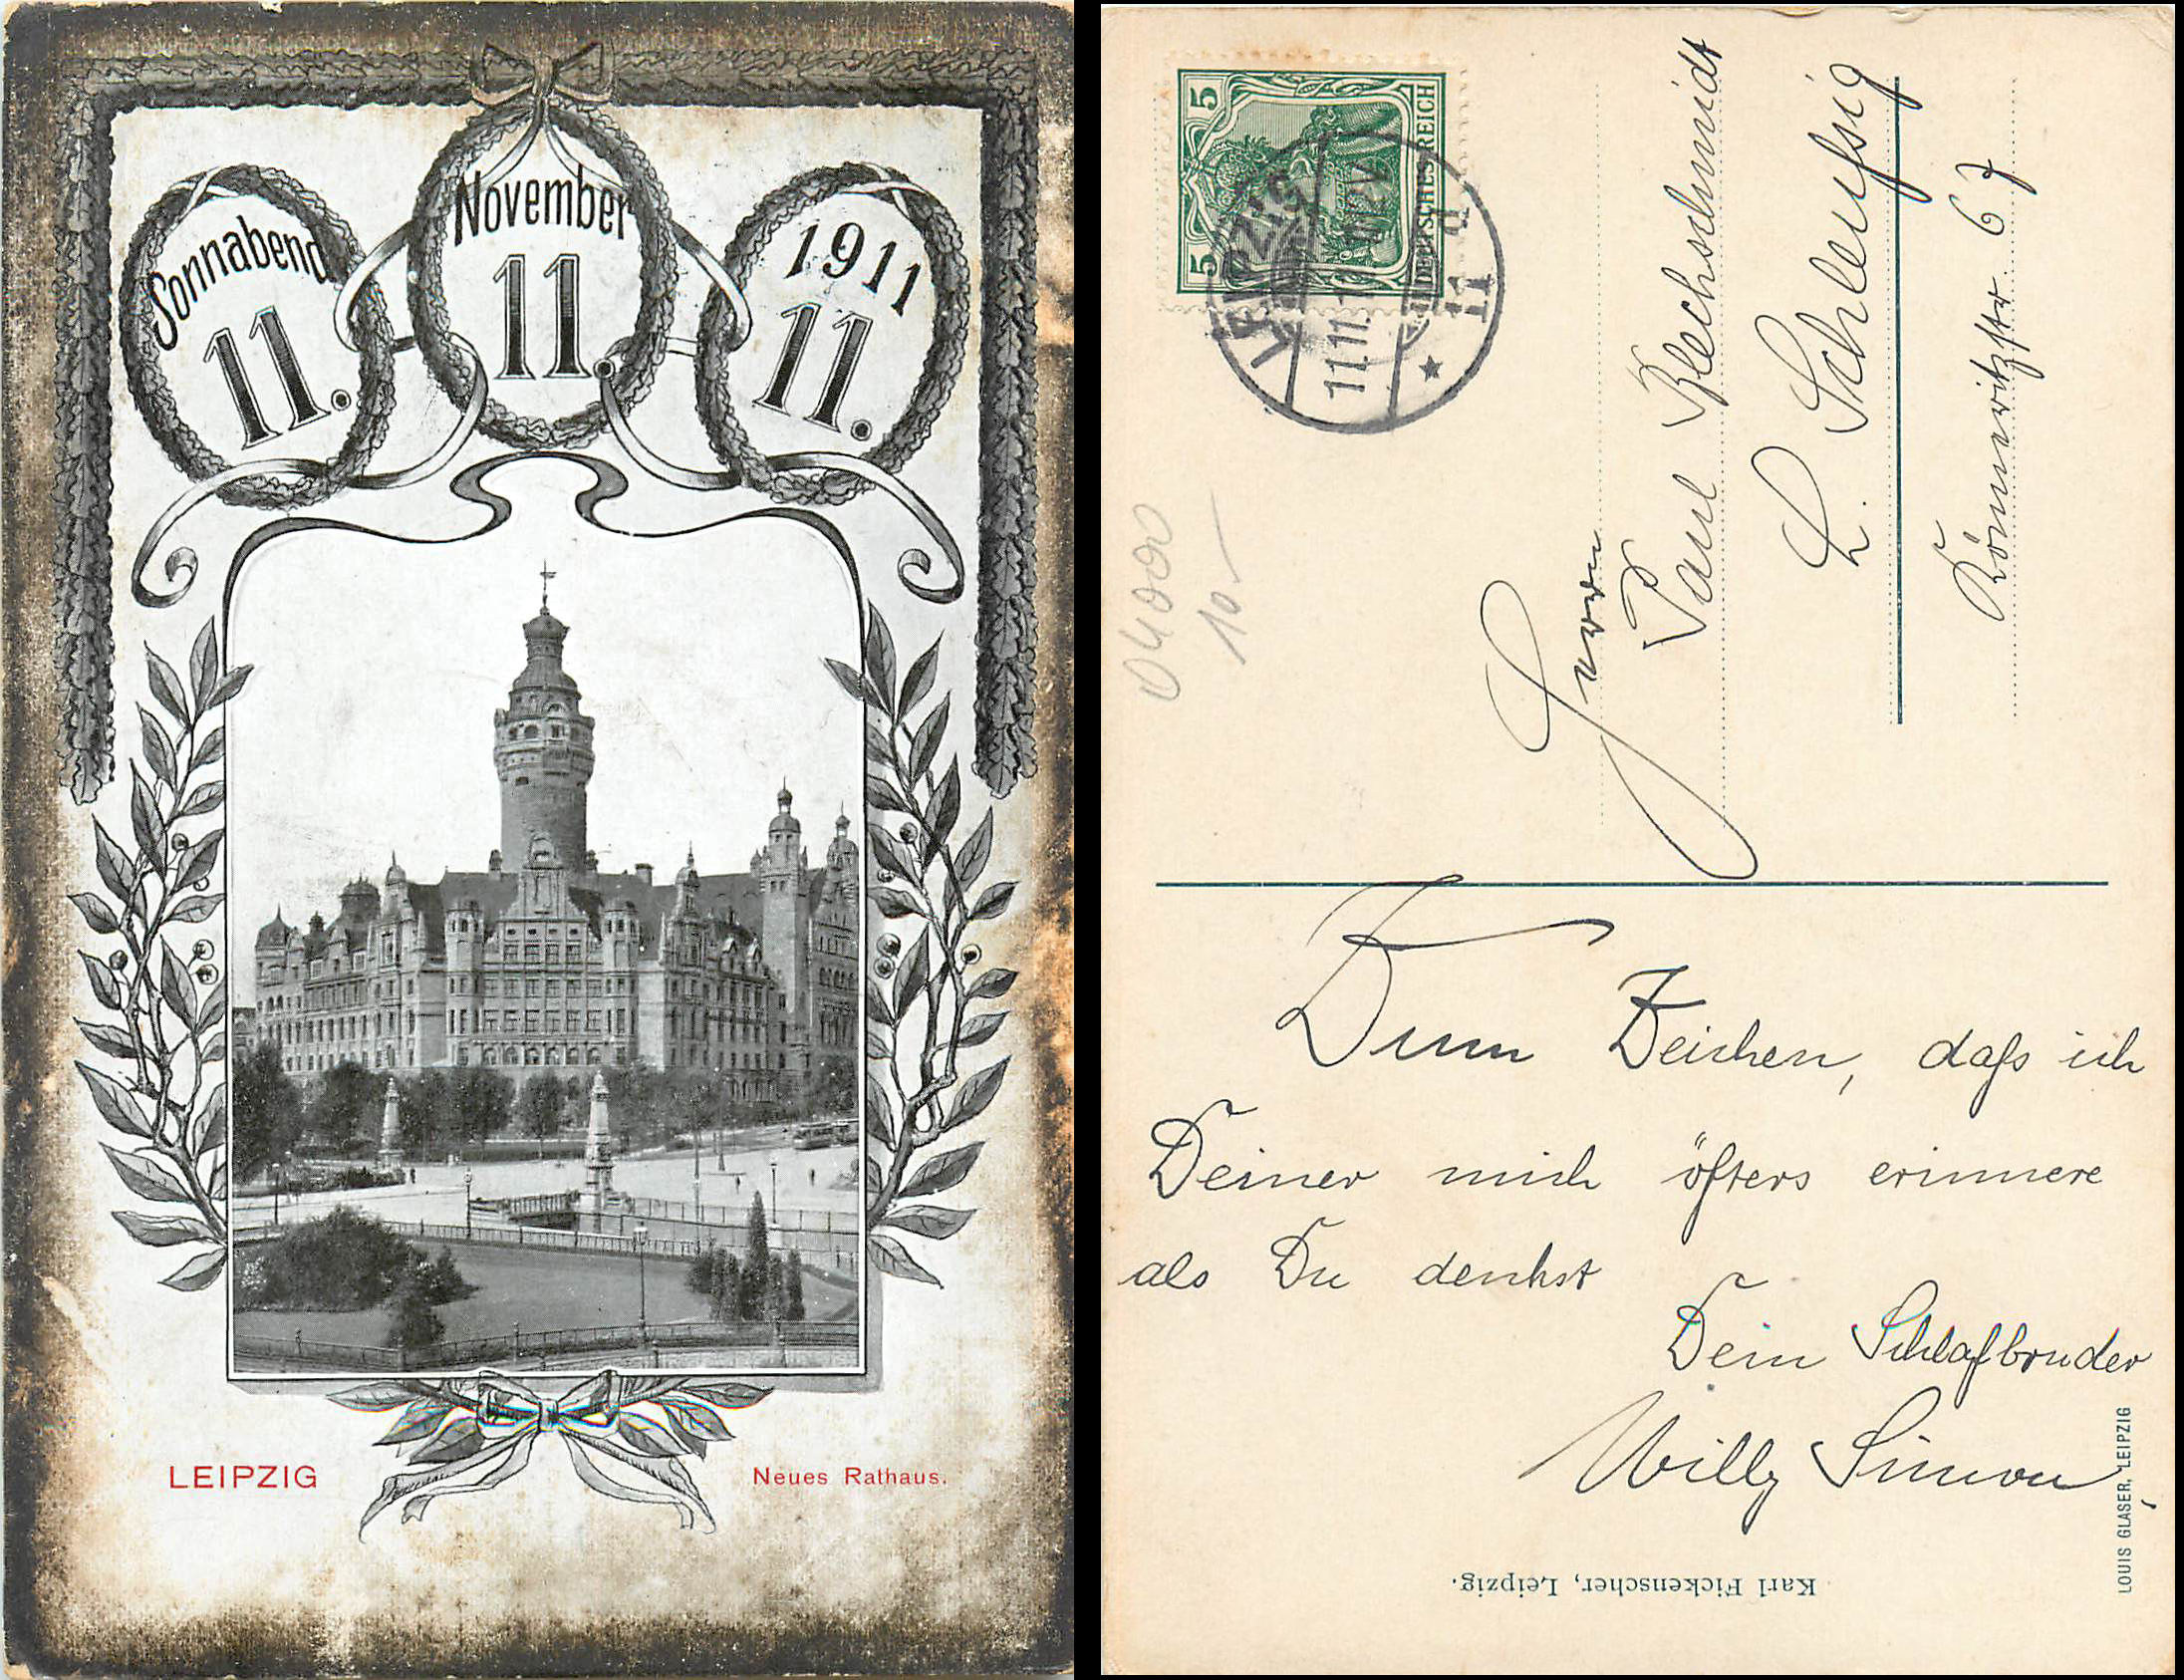 Sonnabend
11.
November
11.
1911
11.
LEIPZIG
Neues Rathaus.
5 5
DEUTSCHES REICH
LEIPZIG
11.11.11
11
*
04000
10.–
Herrn
Paul Blechschmidt
L. Schleußig
Könneritzstr. 67
Zum Zeichen, daß ich
Deiner mich öfters erinnere
als Du denkst
Dein Schlafbruder
Willy Simon
Karl Fickenscher, Leipzig.
LOUIS GLASER, LEIPZIG